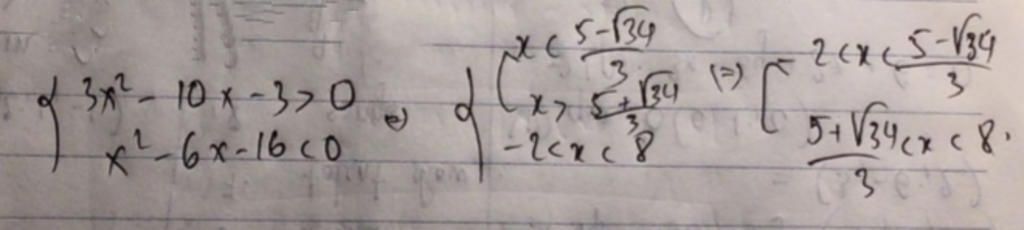 { 3x² - 10x - 3 > 0
x² - 6x - 16 < 0
⇔ { [ x < (5-√34)/3
x > (5+√34)/3
-2 < x < 8
(=) [ - 2 < x < (5-√34)/3
(5+√34)/3 < x < 8.